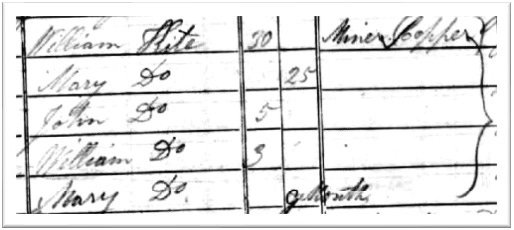 William Kite 30 Miner Copper
Mary Do 25
John Do 5
William Do 3
Mary Do 9 Month